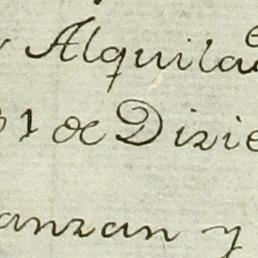 y Alquila
31 de Dizie
anzan y